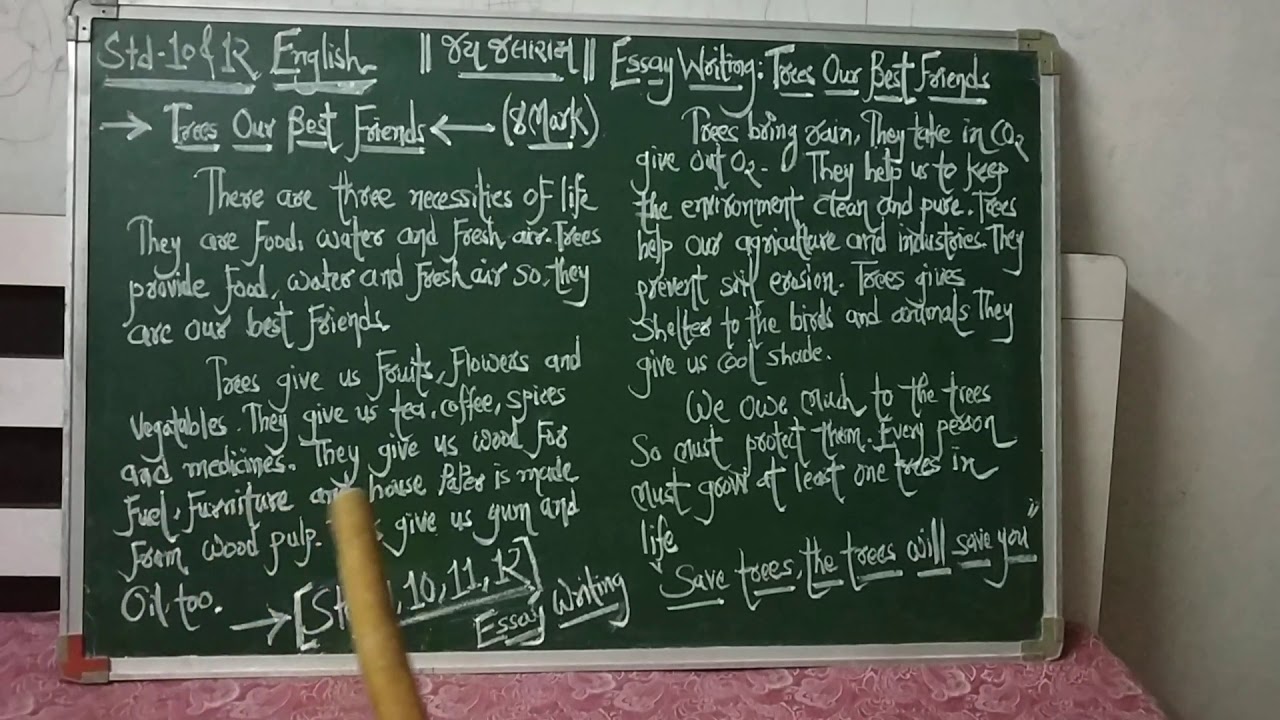 Std-10 & 12 English
|| જય જલારામ ||
Essay Writing: Trees Our Best Friends
→ Trees Our Best Friends ← (8 Mark)
There are three necessities of life
They are food, water and fresh air. Trees
provide food, water and fresh air so, they
are our best friends.
Trees give us fruits, flowers and
vegatables. They give us tea, coffee, spices
and medicines. They give us wood for
fuel, furniture and house Paper is made
from wood pulp. give us gum and
Oil, too.
→ [St , 10, 11, 12]
Essay Writing
Trees bring rain, They take in CO2
give out O2. They help us to keep
the environment clean and pure. Trees
help our agriculture and industries. They
prevent soil erosion. Trees gives
shelter to the birds and animals They
give us cool shade.
We owe much to the trees
So must protect them. Every person
must grow at least one trees in
life
Save trees, the trees will save you"